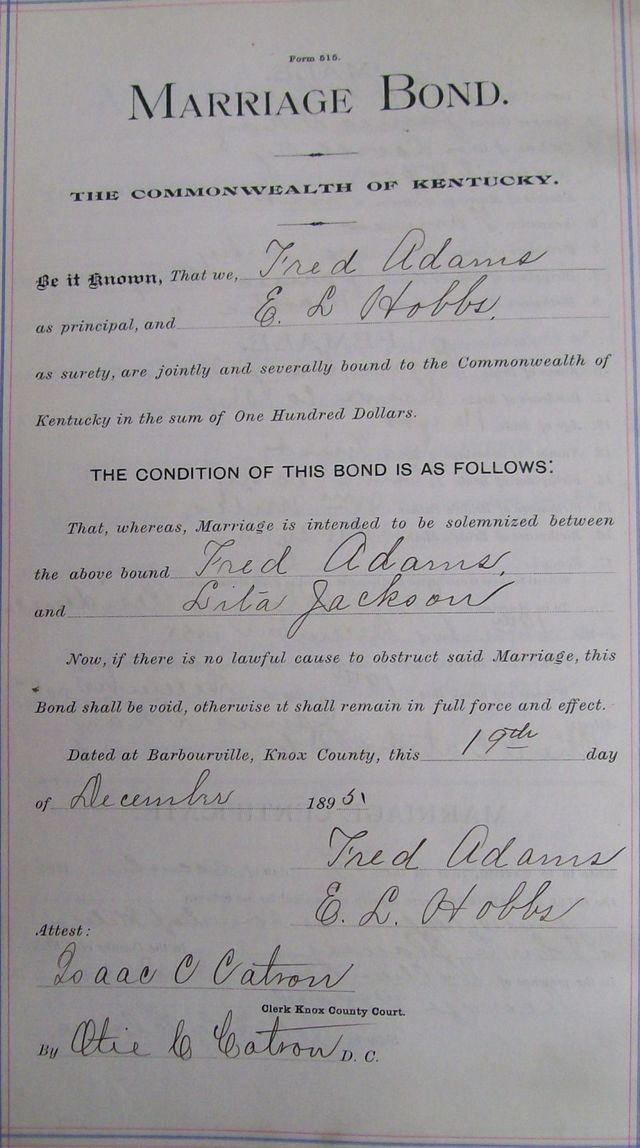 Form 515.
MARRIAGE BOND.
THE COMMONWEALTH OF KENTUCKY.
Be it Known, That we, Fred Adams
as principal, and E. L Hobbs,
as surety, are jointly and severally bound to the Commonwealth of
Kentucky in the sum of One Hundred Dollars.
THE CONDITION OF THIS BOND IS AS FOLLOWS:
That, whereas, Marriage is intended to be solemnized between
the above bound Fred Adams,
and Lita Jackson
Now, if there is no lawful cause to obstruct said Marriage, this
Bond shall be void, otherwise it shall remain in full force and effect.
Dated at Barbourville, Knox County, this 19th day
of December 189
Fred Adams
E. L. Hobbs
Attest:
Isaac C Catron
Clerk Knox County Court.
By Otie C Catron D. C.